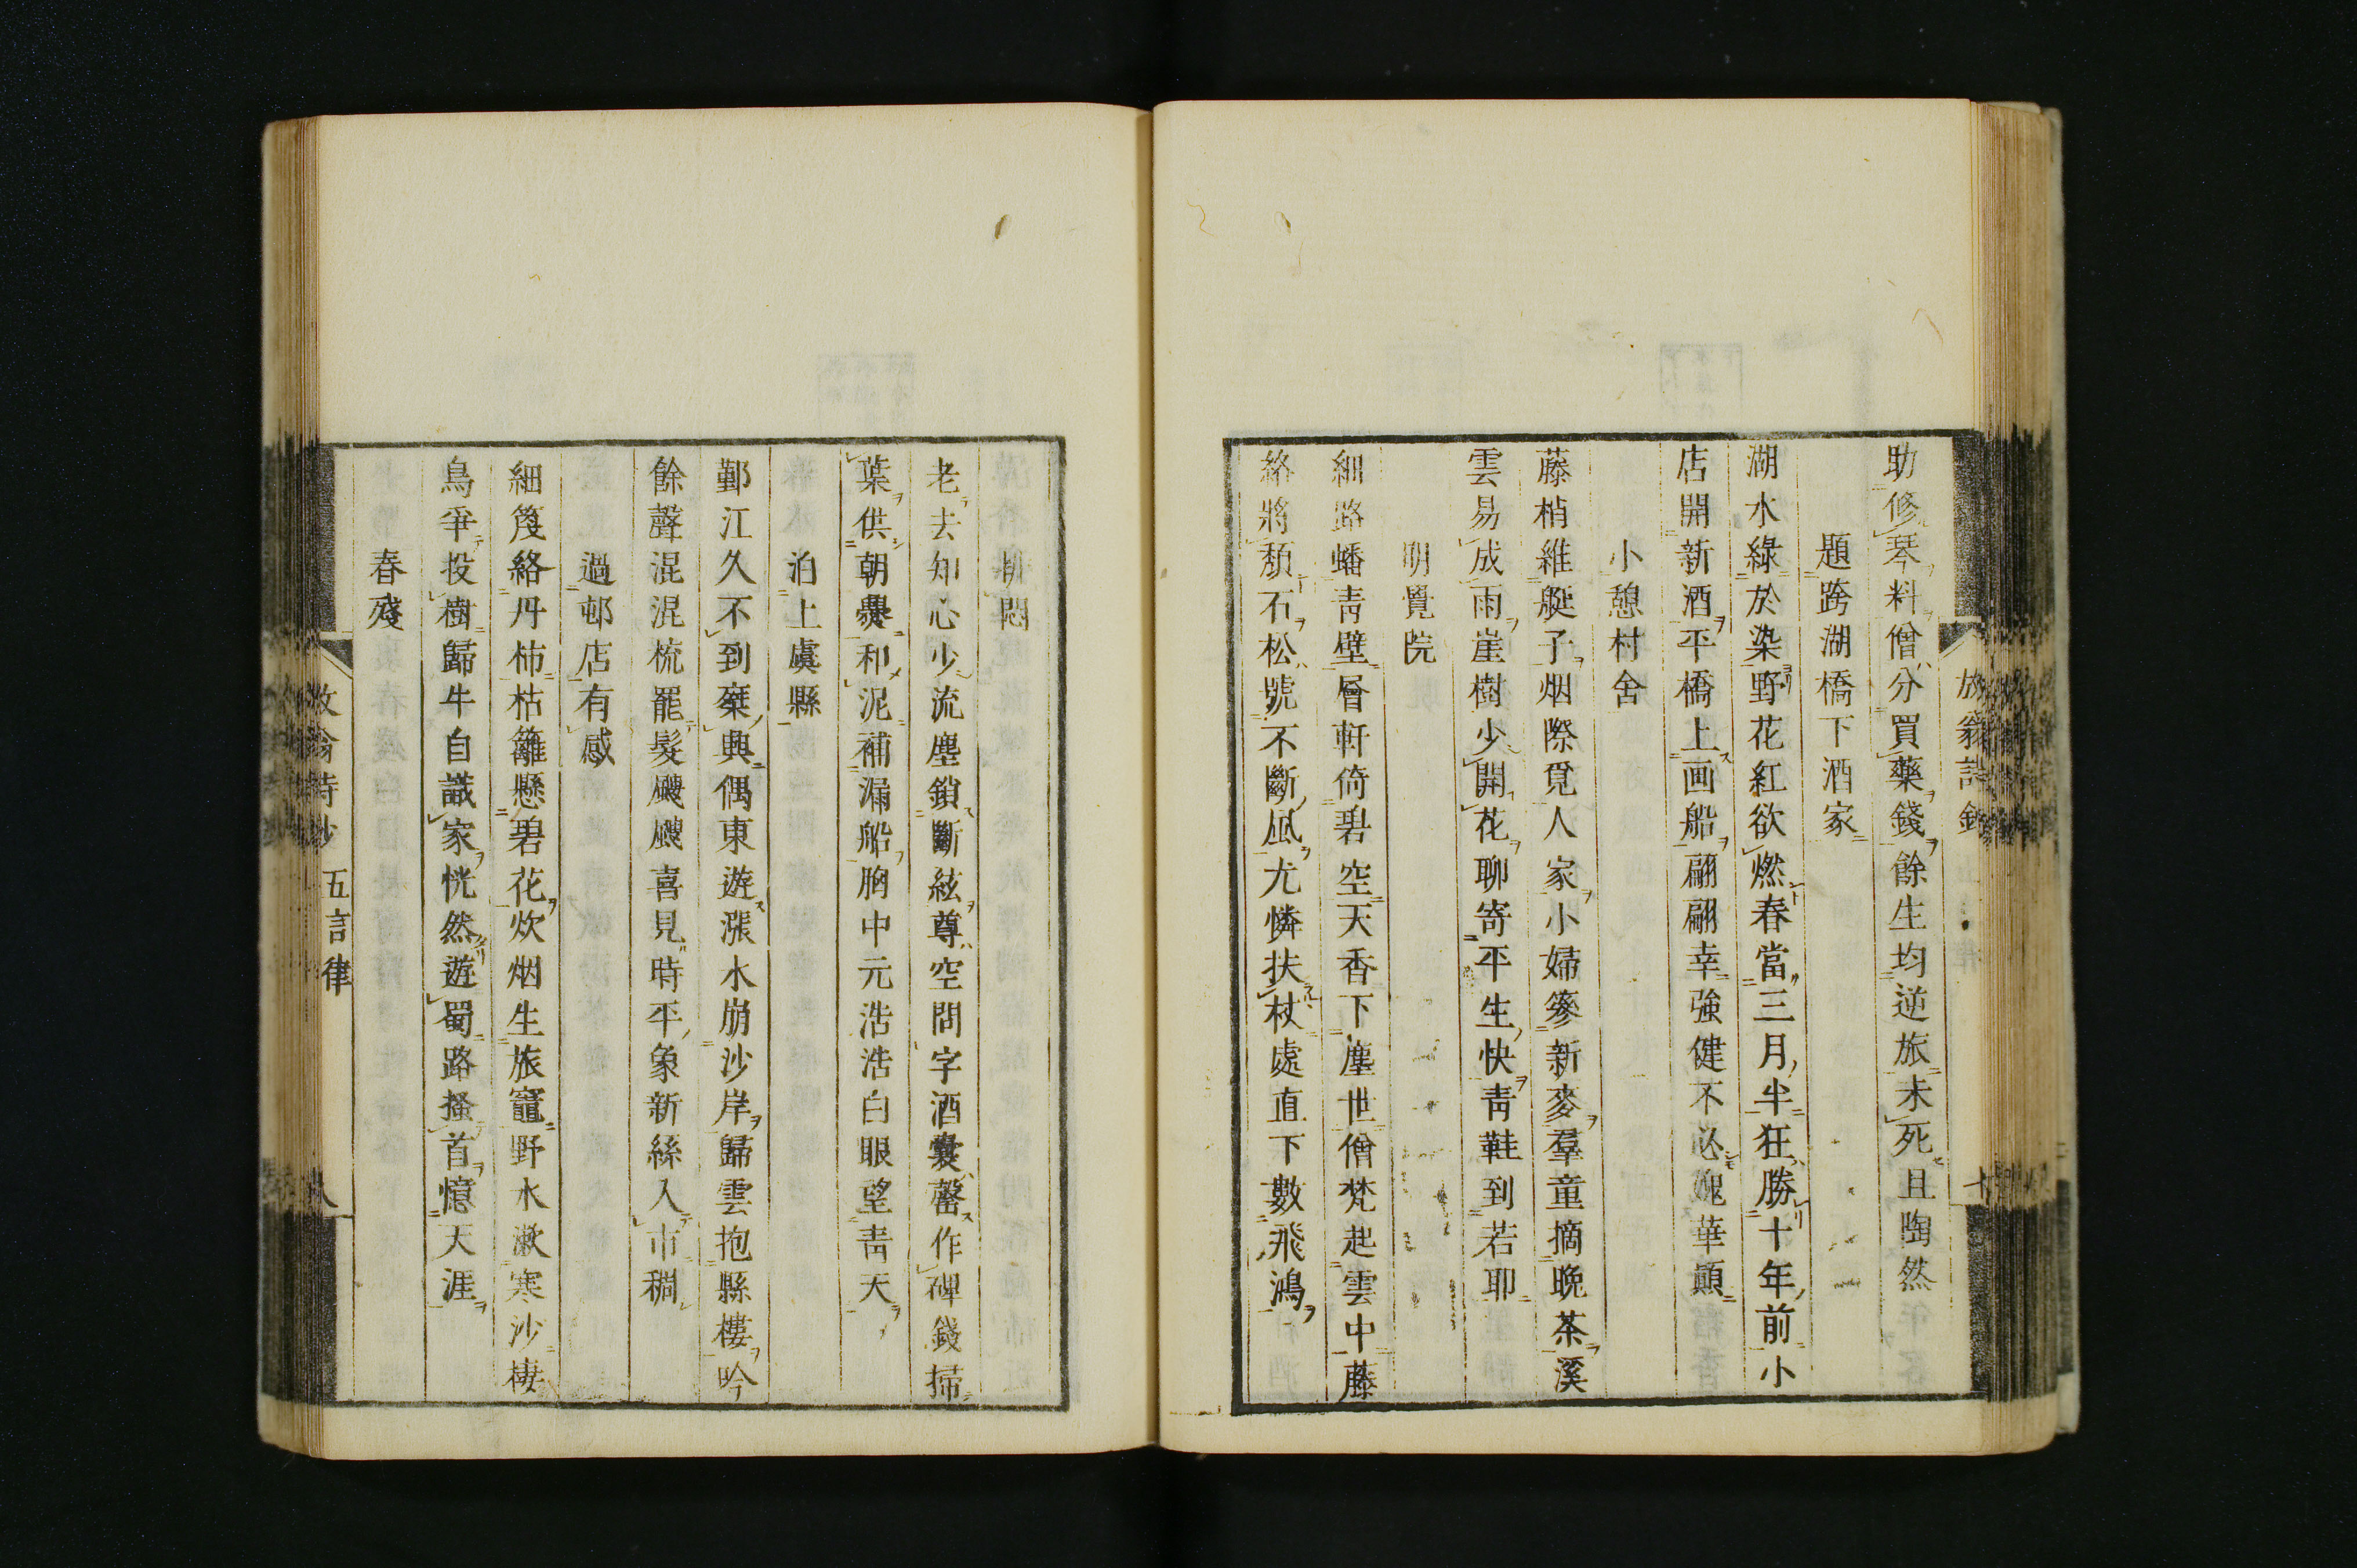 助修琴料僧分買藥錢餘生均逆旅未死且陶然
題跨湖橋下酒家
湖水綠於染野花紅欲燃春當三月半狂勝十年前小
店開新酒平橋上画船翩翩幸強健不必愧華顛
小憩村舍
藤梢維艇子烟際覓人家小婦篸新麥羣童摘晚茶溪
雲易成雨崖樹少開花聊寄平生快青鞋到若耶
明覺院
細路蟠青壁層軒倚碧空天香下塵世僧梵起雲中藤
絡將頹石松號不斷風尤憐扶杖處直下數飛鴻
排悶
老去知心少流塵鎖斷絃尊空問字酒囊罄作碑錢掃
葉供朝爨和泥補漏船胸中元浩浩白眼望青天
泊上虞縣
鄞江久不到乘興偶東遊漲水崩沙岸歸雲抱縣樓吟
餘聲混混梳罷髮颼颼喜見時平象新絲入市稠
過邨店有感
細篾絡丹柿枯籬懸碧花炊烟生旅竈野水漱寒沙棲
鳥爭投樹歸牛自識家恍然遊蜀路搔首憶天涯
春殘
放翁詩鈔 五言律 八